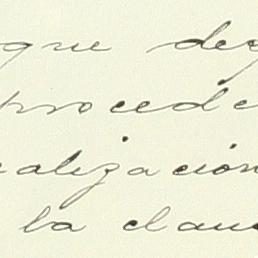 que de
procede
alización
la clau